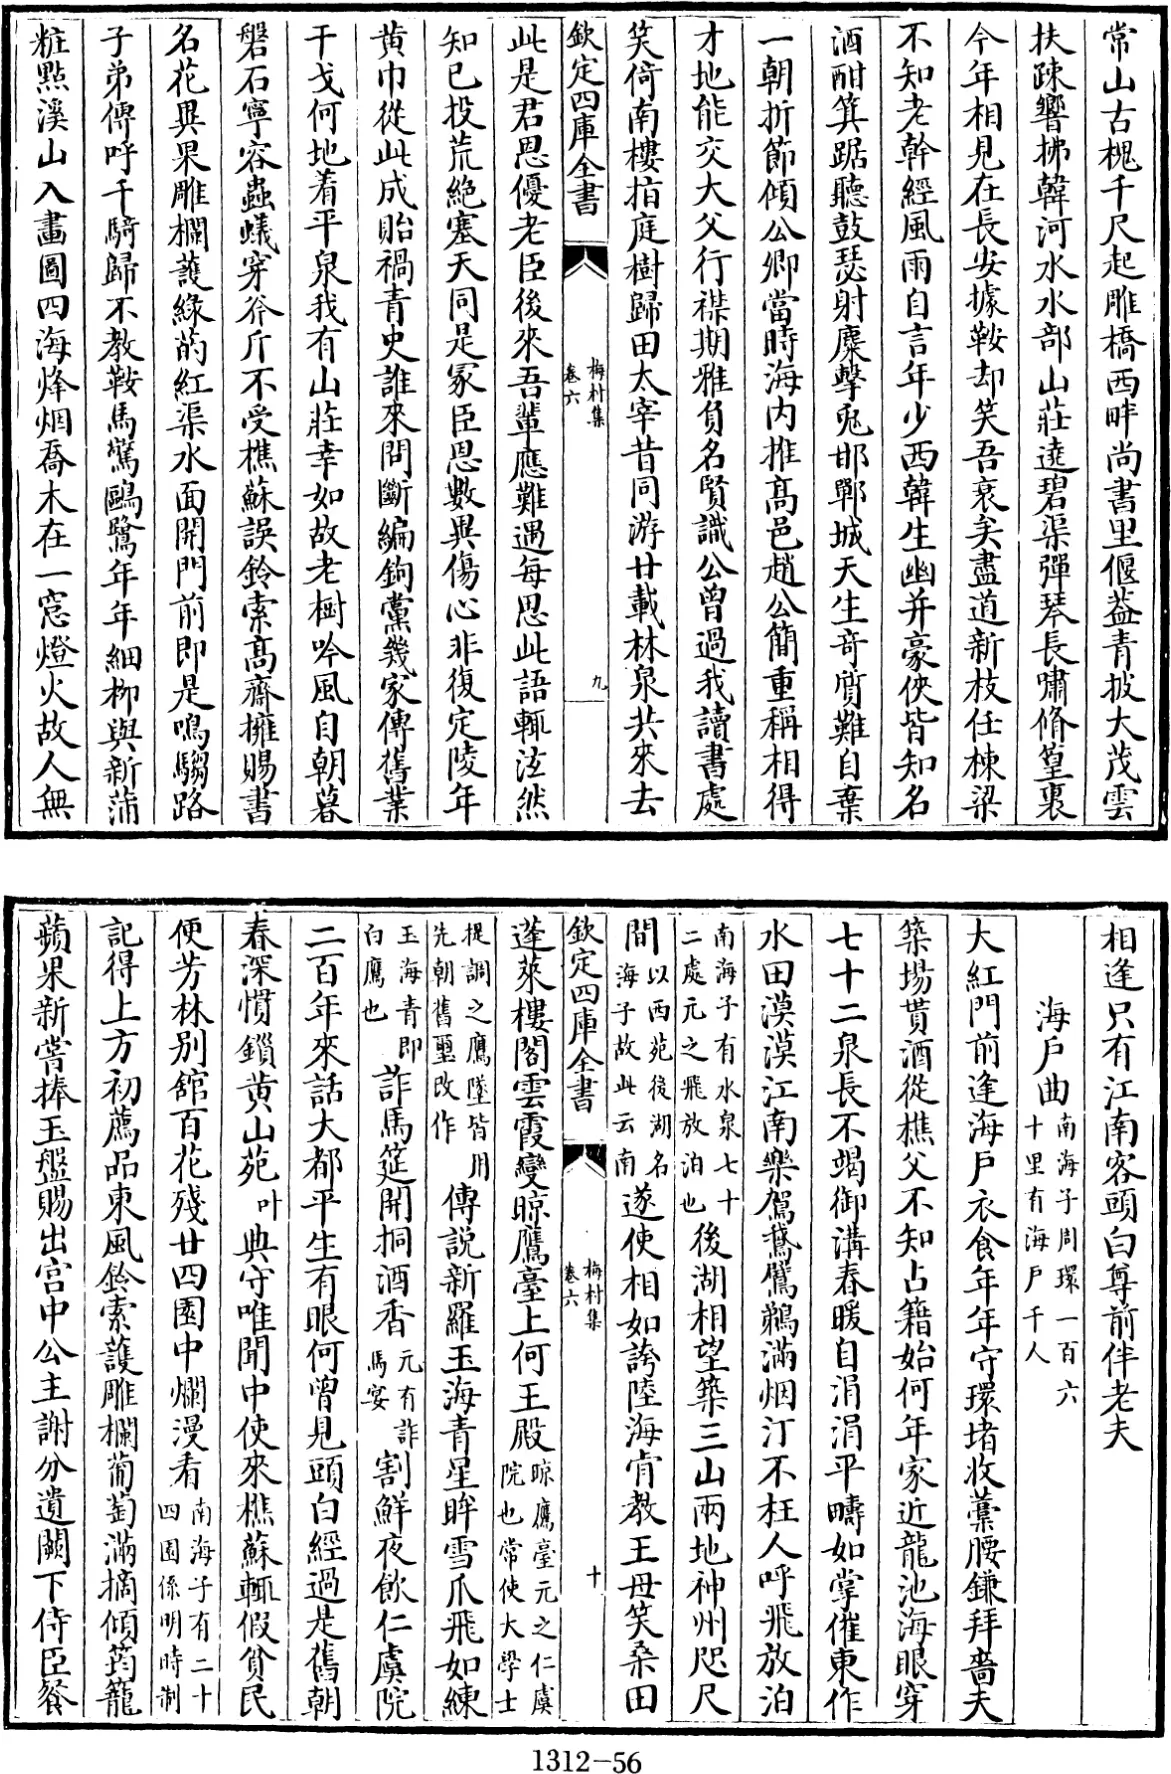 常山古槐千尺起雕橋西畔尚書里偃葢青披大茂雲
扶踈響拂韓河水水部山莊遶碧渠彈琴長嘯脩篁裏
今年相見在長安據鞍却笑吾衰矣盡道新枝任棟梁
不知老幹經風雨自言年少西韓生幽并豪俠皆知名
酒酣箕踞聽鼓瑟射麋擊兎邯鄲城天生竒質難自棄
一朝折節傾公卿當時海内推髙邑趙公簡重稱相得
才地能交大父行襟期雅負名賢識公曾過我讀書處
笑倚南樓指庭樹歸田太宰昔同游廿載林泉共來去
欽定四庫全書
梅村集
卷六
九
此是君恩優老臣後來吾輩應難遇每思此語輒泫然
知已投荒絶塞天同是冢臣恩數異傷心非復定陵年
黄巾從此成貽禍青史誰來問斷編鉤黨幾家傳舊業
干戈何地着平泉我有山莊幸如故老樹吟風自朝暮
磐石寧容蟲蟻穿斧斤不受樵蘇誤鈴索髙齋擁賜書
名花異果雕欄護緑的紅渠水面開門前即是鳴騶路
子弟傳呼千騎歸不教鞍馬驚鷗鷺年年細柳與新蒲
粧點溪山入畫圖四海烽烟喬木在一窓燈火故人無
相逢只有江南客頭白尊前伴老夫
海戸曲南海子周環一百六
十里有海戸千人
大紅門前逢海戸衣食年年守環堵收藁腰鎌拜嗇夫
築場貰酒從樵父不知占籍始何年家近龍池海眼穿
七十二泉長不竭御溝春暖自涓涓平疇如掌催東作
水田漠漠江南樂駕鵞鸊鵜滿烟汀不枉人呼飛放泊
南海子有水泉七十
二處元之飛放泊也後湖相望築三山兩地神州咫尺
間以西苑後湖名
海子故此云南遂使相如誇陸海肯教王母笑桑田
欽定四庫全書
梅村集
卷六
十
蓬萊樓閣雲霞變晾鷹臺上何王殿晾鷹臺元之仁虞
院也常使大學士
提調之鷹墜皆用
先朝舊璽改作傳說新羅玉海青星眸雪爪飛如練
玉海青即
白鷹也詐馬筵開挏酒香元有詐
馬宴割鮮夜飲仁虞院
二百年來話大都平生有眼何曾見頭白經過是舊朝
春深慣鎖黄山苑叶典守唯聞中使來樵蘇輒假貧民
便芳林别舘百花殘廿四園中爛漫看南海子有二十
四園係明時制
記得上方初薦品東風鈴索護雕欄葡萄滿摘傾筠籠
蘋果新嘗捧玉盤賜出宫中公主謝分遺闕下侍臣餐
1312-56